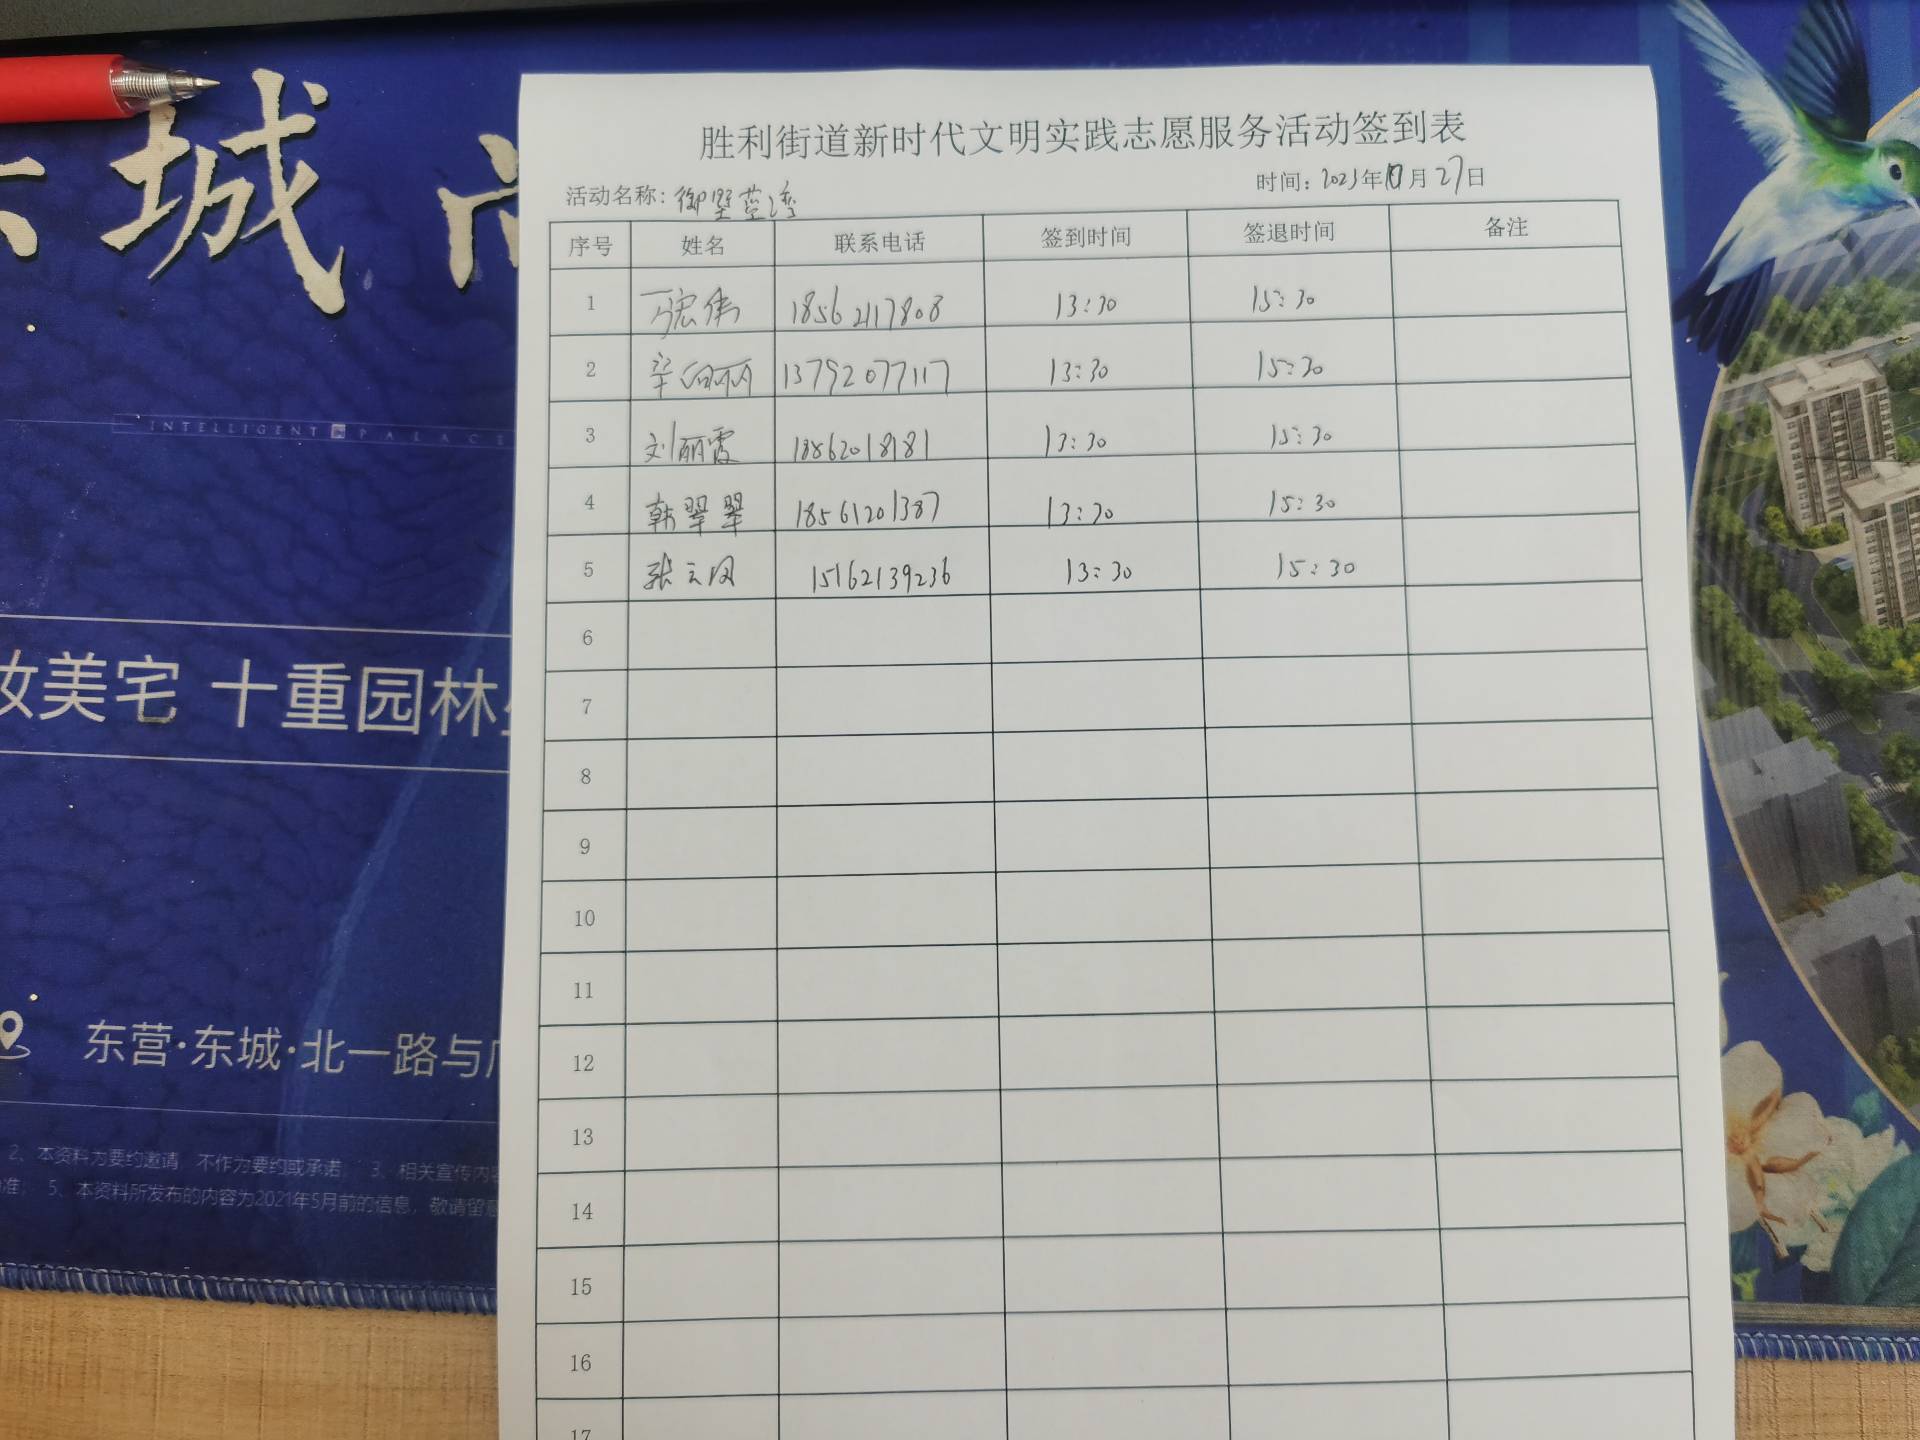 城
INTELLIGENT PALACE
妆美宅 十重园林
东营·东城·北一路与广
2、本资料为要约邀请 不作为要约或承诺; 3、相关宣传内容
准; 5、本资料所发布的内容为2021年5月前的信息,敬请留意
胜利街道新时代文明实践志愿服务活动签到表
活动名称: 御墅蓝湾 时间: 2023年 月27日
序号 姓名 联系电话 签到时间 签退时间 备注
1 18562117808 13:30 15:30
2 13792077117 13:30 15:30
3 刘丽霞 18862018181 13:30 15:30
4 韩翠翠 18561201387 13:30 15:30
5 张云凤 15162139236 13:30 15:30
6
7
8
9
10
11
12
13
14
15
16
17